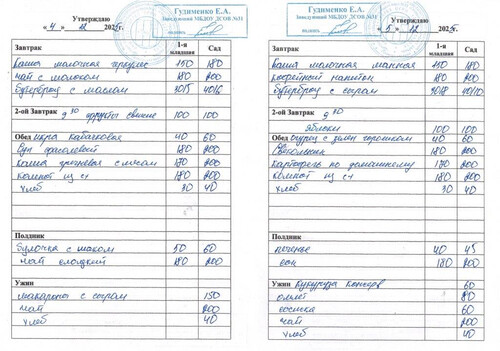 Гудименко Е.А.
Заведующий МБДОУ ДСОВ №31
подпись
Утверждаю
«4» 12 2025г.
Завтрак 1-я младшая Сад
Каша молочная 150 180
чай с молоком 180 200
бутерброд с маслом 30/5 40/6
2-ой Завтрак 9 30 фрукты свежие 100 100
Обед икра кабачковая 40 60
Суп фасолевый 180 200
Каша гречневая с мясом 170 200
Компот из с/ф 180 200
хлеб 30 40
Полдник
Булочка с маком 50 60
чай сладкий 180 200
Ужин
макароны с сыром 150
чай 200
хлеб 40
Гудименко Е.А.
Заведующий МБДОУ ДСОВ №31
подпись
Утверждаю
«5» 12 2025г.
Завтрак 1-я младшая Сад
Каша молочная манная 150 180
кофейный напиток 180 200
бутерброд с сыром
2-ой Завтрак 9 30
Яблоки 100 100
Обед Огурец с зелен горошком 40 60
Свекольник 180 200
Картофель по домашнему 170 200
Компот из с/ф 180 200
хлеб 30 40
Полдник
печенье 40 45
сок 180 200
Ужин Кукуруза консерв 60
омлет 80
сосиска 60
чай 200
хлеб 40